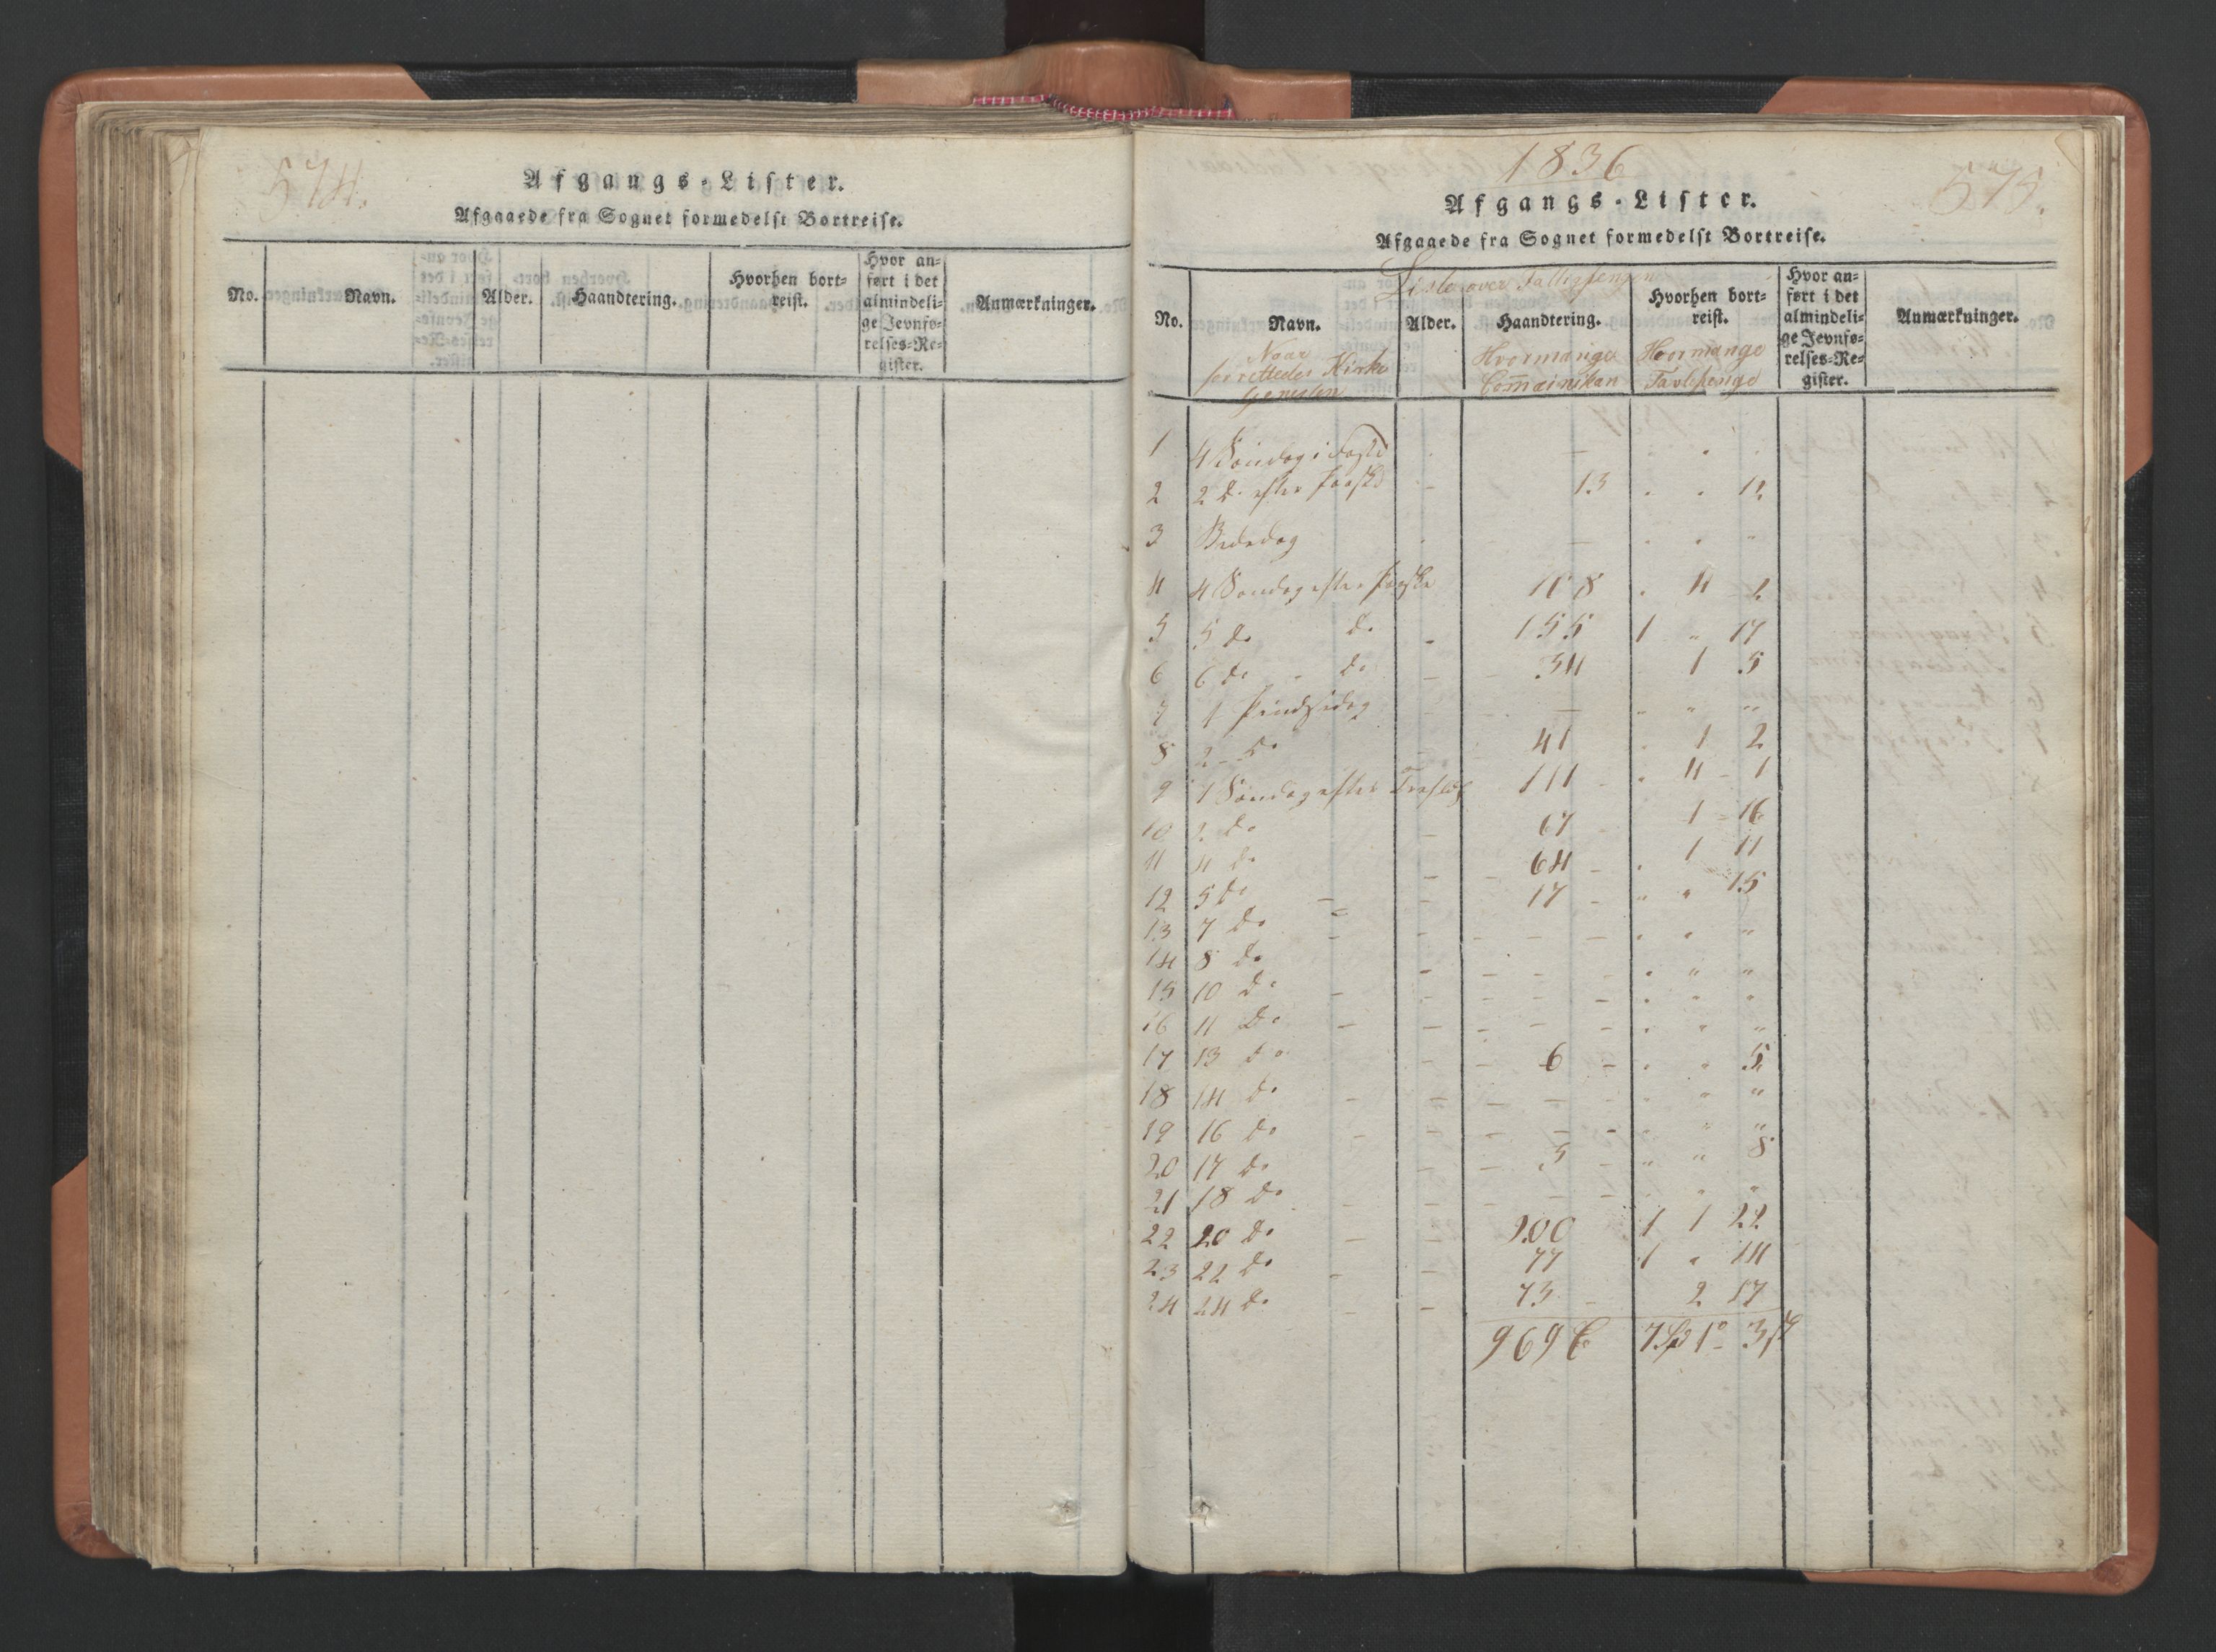 574.
Afgangs-Lister.
Afgaaede fra Sognet formedelst Bortreise.
No. Navn. Alder. Haandtering. Hvorhen bort-reist. Hvor an-ført i det almindeli-ge Jevnfø-relses-Re-gister. Anmærkninger.
1836
575.
Afgangs-Lister.
Afgaaede fra Sognet formedelst Bortreise.
Liste over
No. Navn. Alder. Haandtering. Hvorhen bort-reist. Hvor an-ført i det almindeli-ge Jevnfø-relses-Re-gister. Anmærkninger.
Naar forrettedes Kirke Hvormange Hvormange Tavlepenge
1 4 Søndag i Faste - " "
2 2 do efter Paaske - 13 " " 12
3 Bededag - " " "
4 4 Søndag efter Paaske 108 " 4 2
5 5 do do - 155 1 " 17
6 6 do - do - 34 1 5
7 1 Pindsedag - " " "
8 2 - do 41 " 1 2
9 1 Søndag efter 111 " 4 - 1
10 2 do - 67 1 - 16
11 4 do - 64 - " 1 11
12 5 do - - 17 - " " 15
13 7 do - - - - - " " "
14 8 do - - - " " "
15 10 do - - - - - " " "
16 11 do - - - - - " " "
17 13 do - 6 - " " 5
18 14 do - - - - - " " "
19 16 do - - - - - " " "
20 17 do - - 5 - " " 8
21 18 do - - - - - " " "
22 20 do - - 200 1 1 22
23 22 do - - 77 1 " 14
24 24 do - - 73 - 2 17
969 C 7 Spd 1 o - 3 s